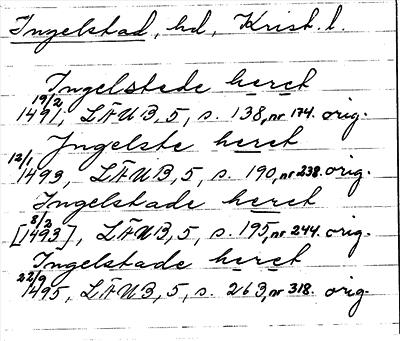 Ingelstad, hd, Krist. l.
Ingelstede heret
19/2 1491, LÄUB, 5, s. 138, nr 174. orig.
Jngelste heret
12/1 1493, LÄUB, 5, s. 190, nr 238. orig.
Ingelstade heret
[8/2 1493], LÄUB, 5, s. 195, nr 244. orig.
Ingelstade heret
22/9 1495, LÄUB, 5, s. 263, nr 318. orig.